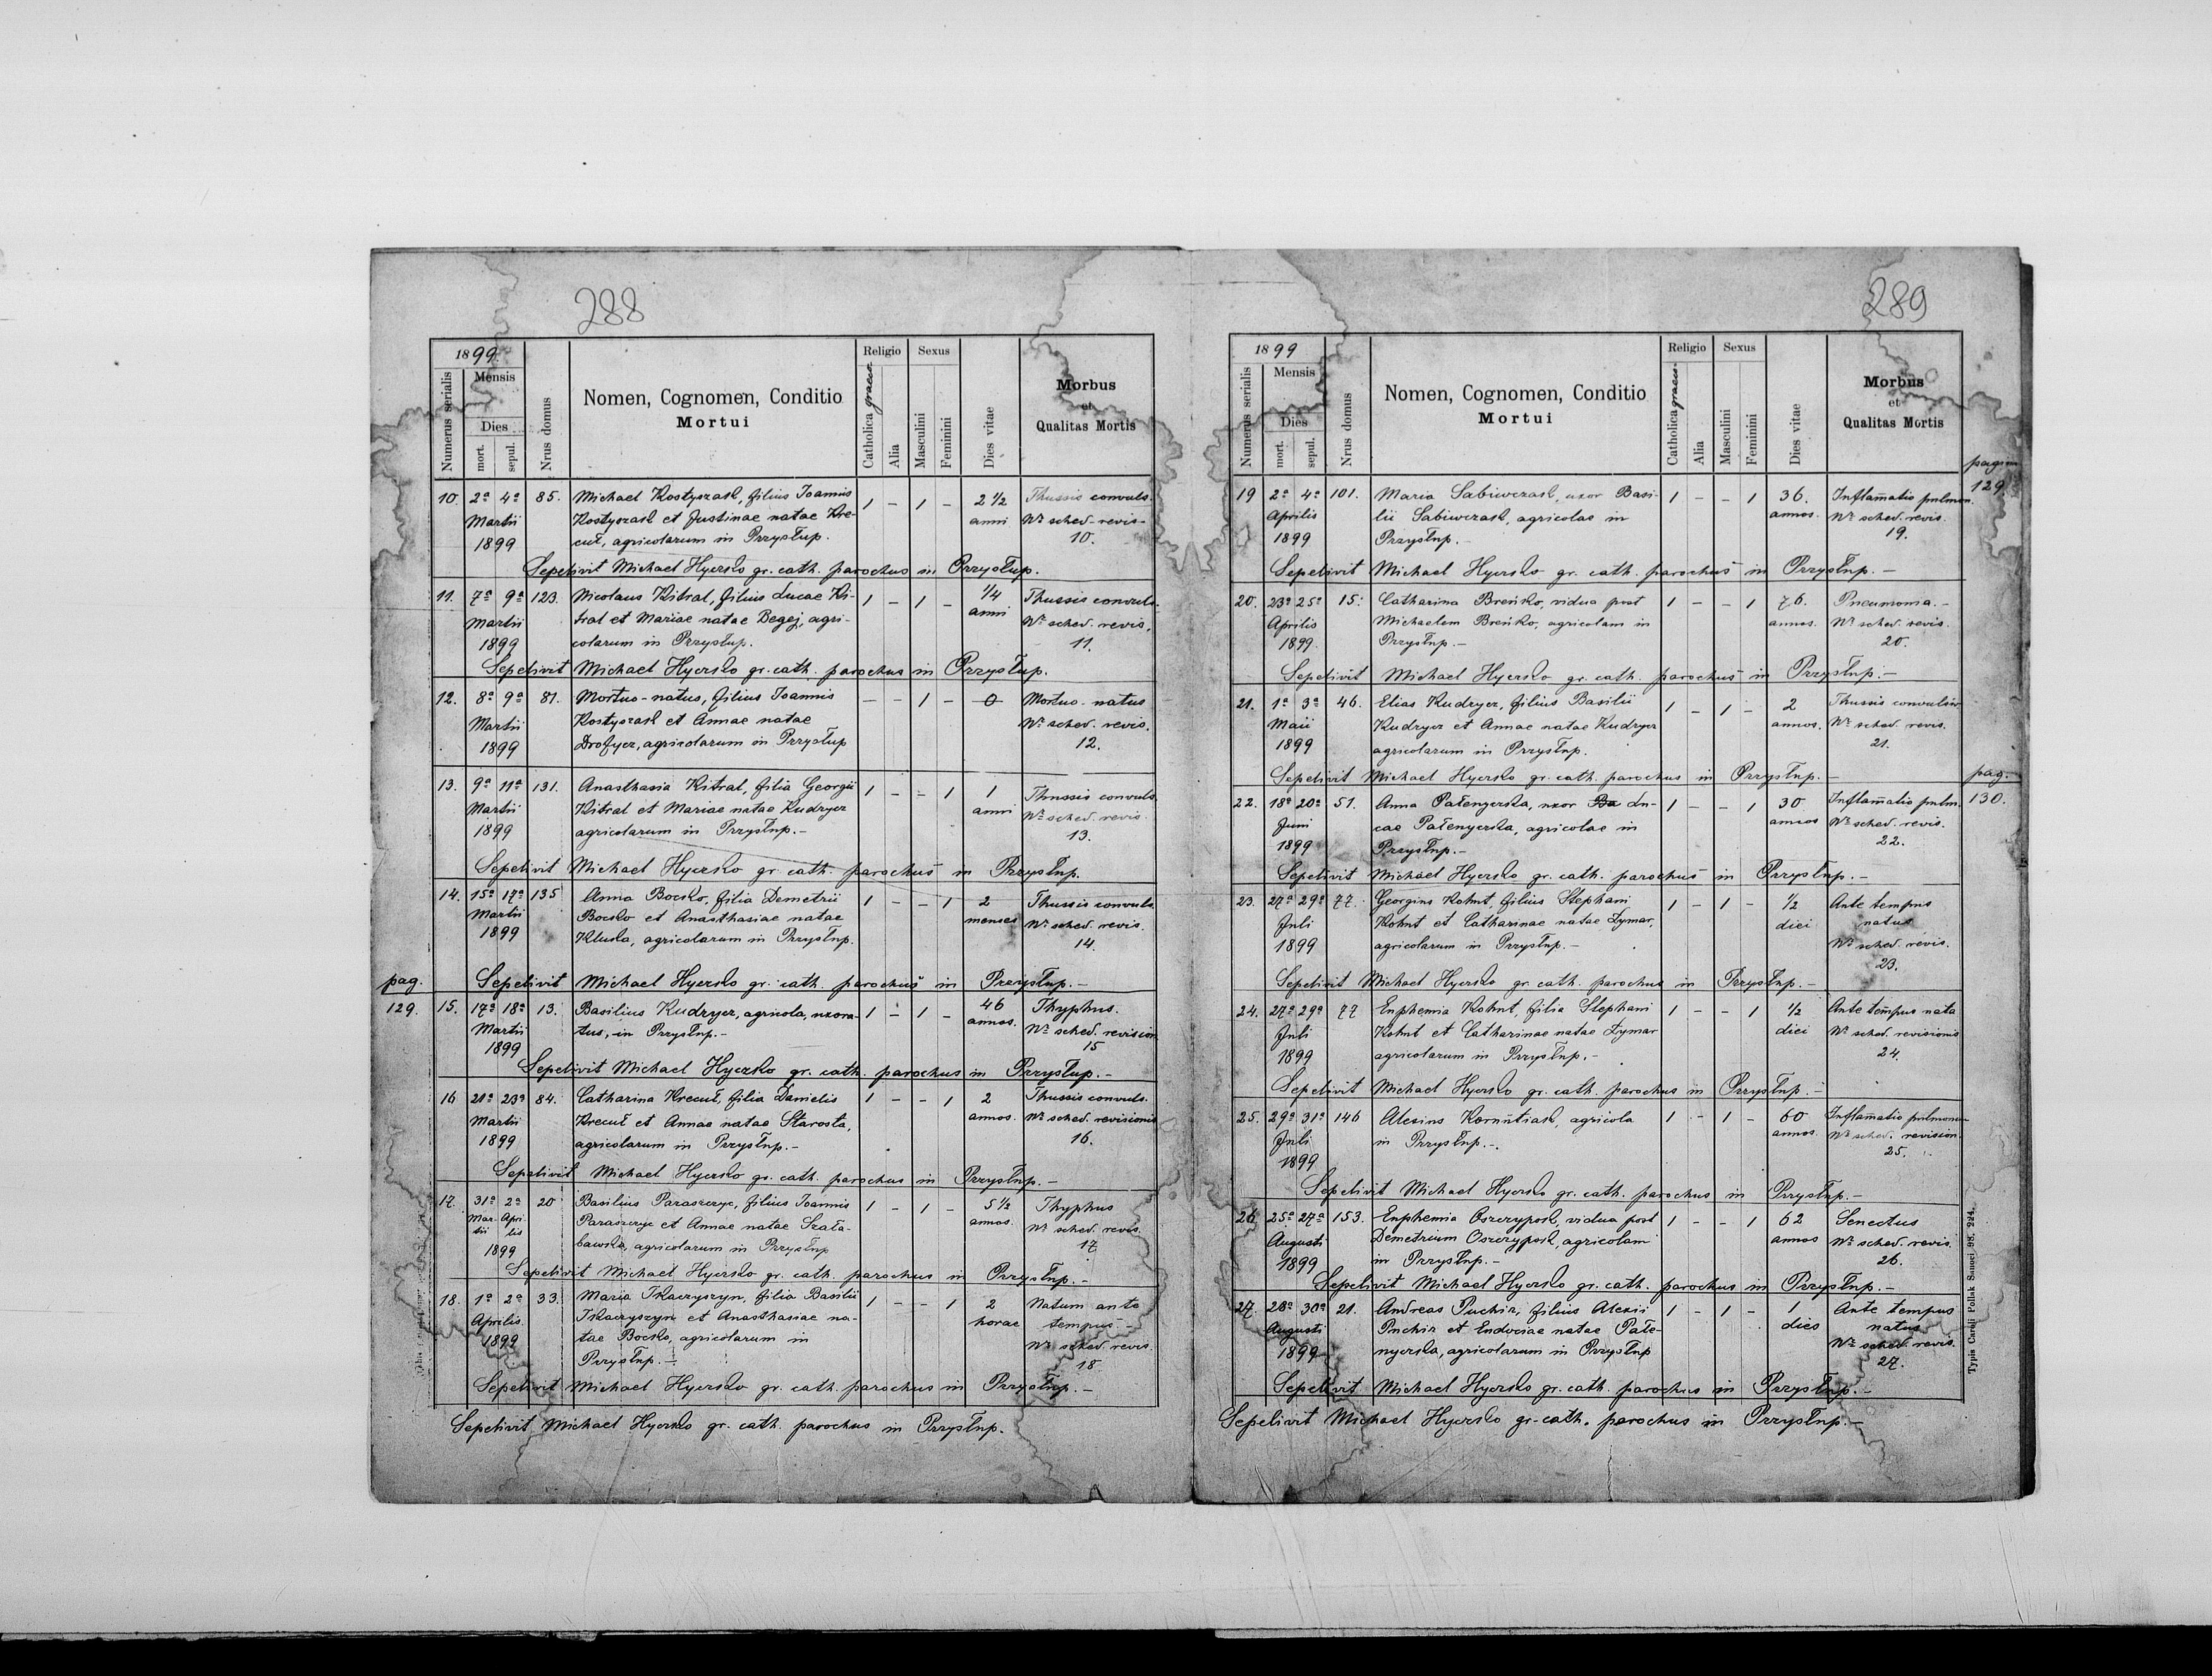 288
1899.
Numerus serialis
Mensis
Dies
mort.
sepul.
Nrus domus
Nomen, Cognomen, Conditio
Mortui
Religio
Catholica graeca
Alia
Sexus
Masculini
Feminini
Dies vitae
Morbus
et
Qualitas Mortis
10. 2ª 4ª 85. Michael Kostyszak, filius Joannis 1 - 1 - 2 1/2 Thussis convuls.
Martii Kostyszak et Justinae natae Kre- anni Nr sched. revis.
1899 cuł, agricolarum in Przysłup. 10.
Sepelivit Michael Hyersko gr. cath. parochus in Przysłup.
11. 7ª 9ª 123. Nicolaus Kitral, filius Lucae Ki- 1 - 1 - 1/4 Thussis convuls.
Martii tral et Mariae natae Begej, agri- anni Nr sched. revis.
1899 colarum in Przysłup. 11.
Sepelivit Michael Hyersko gr. cath. parochus in Przysłup.
12. 8ª 9ª 81. Mortuo-natus, filius Joannis - - 1 - 0 Mortuo-natus
Martii Kostyszak et Annae natae Nr sched. revis.
1899 Drofycz, agricolarum in Przysłup 12.
13. 9ª 11ª 131. Anasthasia Kitral, filia Georgii 1 - - 1 1 Thussis convuls.
Martii Kitral et Mariae natae Kudryez anni Nr sched. revis.
1899 agricolarum in Przysłup.- 13.
Sepelivit Michael Hyersko gr. cath. parochus in Przysłup.
14. 15ª 17ª 135 Anna Bocsko, filia Demetrii 1 - - 1 2 Thussis convuls
Martii Bocsko et Anasthasiae natae menses Nr sched. revis.
1899 Kluska, agricolarum in Przysłup. 14.
pag. Sepelivit Michael Hyersko gr. cath. parochus in Przysłup.-
129. 15. 17ª 18ª 13. Basilius Kudryez, agricola, uxora- 1 - 1 - 46 Thyphus.
Martii tus, in Przysłup.- annos. Nr sched. revision
1899 15
Sepelivit Michael Hyersko gr. cath. parochus in Przysłup.-
16 21ª 23ª 84. Catharina Krecuł, filia Danielis 1 - - 1 2 Thussis convuls.
Martii Krecuł et Annae natae Starosta, annos. Nr sched. revisionis
1899 agricolarum in Przysłup.- 16.
Sepelivit Michael Hyersko gr. cath. parochus in Przysłup.-
17. 31ª 2ª 20 Basilius Paraszczyc, filius Joannis 1 - 1 - 5 1/2 Thyphus
Mar- Apri- Paraszczyc et Annae natae Szała- annos. Nr sched. revis.
tii lis bawska, agricolarum in Przysłup 17
1899
Sepelivit Michael Hyersko gr. cath. parochus in Przysłup.-
18. 1ª 2ª 33. Maria Tkaczyszyn, filia Basilii 1 - - 1 2 Natum ante
Aprilis Tkaczyszyn et Anasthasiae na- horae tempus.-
1899 tae Bocsko, agricolarum in Nr sched. revis.
Przysłup.- 18
Sepelivit Michael Hyersko gr. cath. parochus in Przysłup.-
Sepelivit Michael Hyersko gr. cath. parochus in Przysłup.
289
1899
Numerus serialis
Mensis
Dies
mort.
sepul.
Nrus domus
Nomen, Cognomen, Conditio
Mortui
Religio
Catholica graeca
Alia
Sexus
Masculini
Feminini
Dies vitae
Morbus
et
Qualitas Mortis
pagina
129
19 2ª 4ª 101. Maria Sabiwczak, uxor Basi- 1 - - 1 36. Inflamatio pulmon.
Aprilis lii Sabiwczak, agricolae in annos. Nr sched. revis.
1899 Przysłup.- 19.
Sepelivit Michael Hyersko gr. cath. parochus in Przysłup.-
20. 23ª 25ª 15. Catharina Breńko, vidua post 1 - - 1 76. Pneumonia.-
Aprilis Michaelem Breńko, agricolam in annos. Nr sched. revis.
1899. Przysłup.- 20.
Sepelivit Michael Hyersko gr. cath. parochus in Przysłup.-
21. 1ª 3ª 46. Elias Kudryez, filius Basilii 1 - 1 - 2 Thussis convulsiv
Maii Kudryez et Annae natae Kudryez annos. Nr sched. revis.
1899 agricolarum in Przysłup. 21.
Sepelivit Michael Hyersko gr. cath. parochus in Przysłup.- pag.
22. 18ª 20ª 51. Anna Pałenyerska, uxor Ba Lu- 1 - - 1 30 Inflamatio pulm. 130.
Juni cae Pałenyerska, agricolae in annos Nr sched. revis.
1899 Przysłup.- 22.
Sepelivit Michael Hyersko gr. cath. parochus in Przysłup.-
23. 27ª 29ª 77. Georgius Kohut, filius Stephani 1 - 1 - 1/2 Ante tempus
Juli Kohut et Catharinae natae Dymar, diei natus
1899 agricolarum in Przysłup.- Nr sched. revis.
23.
Sepelivit Michael Hyersko gr. cath. parochus in Przysłup.-
24. 27ª 29ª 77 Euphemia Kohut, filia Stephani 1 - - 1 1/2 Ante tempus nata
Juli Kohut et Catharinae natae Dymar diei Nr sched. revisionis
1899 agricolarum in Przysłup.- 24.
Sepelivit Michael Hyersko gr. cath. parochus in Przysłup.-
25. 29ª 31ª 146 Alexius Kornutiak, agricola 1 - 1 - 60 Inflamatio pulmonum
Juli in Przysłup.- annos. Nr sched. revision.
1899 25.
Sepelivit Michael Hyersko gr. cath. parochus in Przysłup.-
26. 25ª 27ª 153. Euphemia Oszczypok, vidua post 1 - - 1 62 Senectus
Augusti Demetrium Oszczypok, agricolam annos Nr sched. revis.
1899 in Przysłup.- 26.
Sepelivit Michael Hyersko gr. cath. parochus in Przysłup.-
27. 28ª 30ª 21. Andreas Puchir, filius Alexii 1 - 1 - 1 Ante tempus
Augusti Puchir et Eudociae natae Pałe- dies natus
1899 nyerska, agricolarum in Przysłup Nr sched. revis.
27.
Sepelivit Michael Hyersko gr. cath. parochus in Przysłup.-
Sepelivit Michael Hyersko gr. cath. parochus in Przysłup.-
Typis Caroli Pollak Sanoci 98. 224.